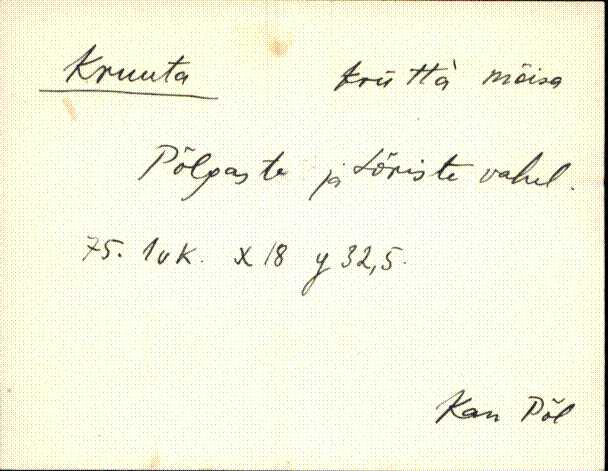 Kruuta krüttä mõisa
Põlgaste ja Lõriste vahel.
75. lvk. x 18 y 32,5.
Kan Põl